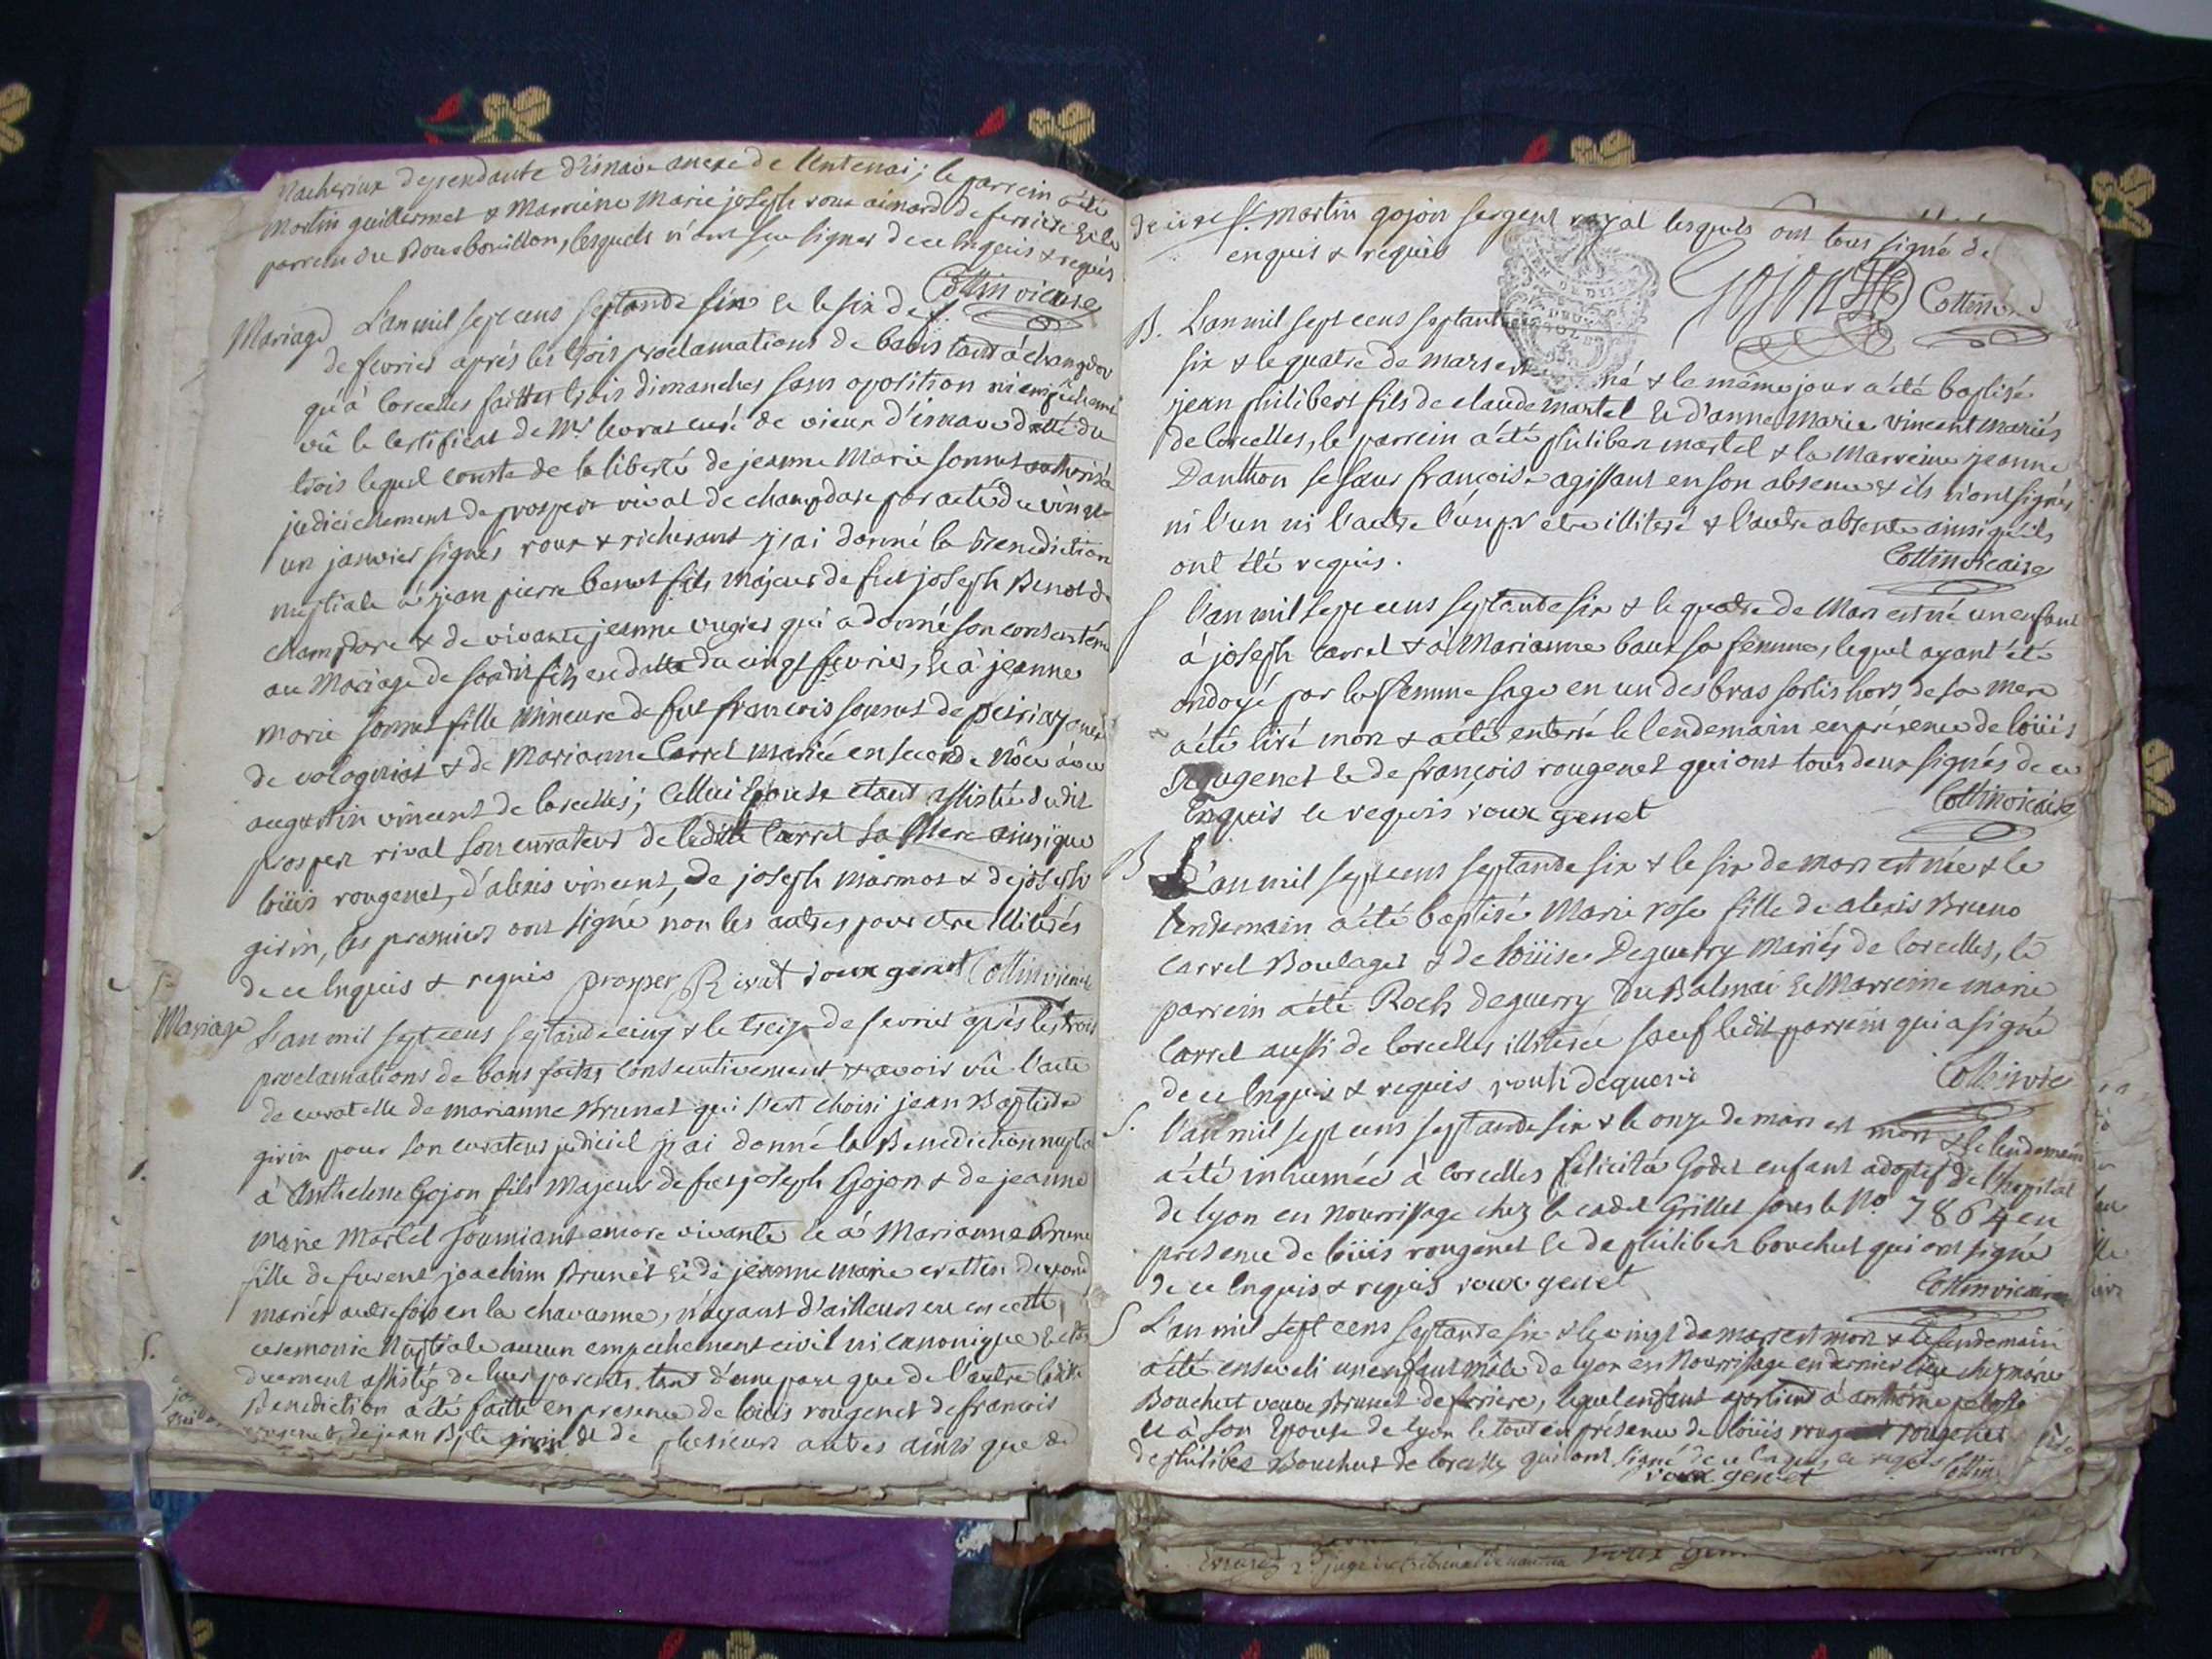 dependante d'isnave anexe de lentenai; le parrein a été
Martin guillermet & Marreine Marie joseph roux ainard de ferriere & le
parrein du Bourbouillon, lesquels n'ont sçu signer de ce Enquis & requis
Cottin vicaire
Mariage L'an mil sept cens septante six et le six de f.
de fevrier aprés les trois proclamations de bans tant à champdor
qu'à Corcelles faittes trois dimanches sans oposition ni empêchement
vû le Certificat de Mr curé de vieux d'isnave datté du
trois lequel conste de la liberté de jeanne Marie sonnet authorisée
judiciellement de prosper rival de champdore par acte du vingt
un janvier signés roux & richerant j'ai donné la Benediction
nuptiale à jean pierre benot fils majeur de feu joseph Benot de
champdore & de vivante jeanne vugier qui a donné son consentem
au Mariage de son dit fils en datte du cinq fevrier, & à jeanne
marie sonnet fille Mineure de feu francois sonnet de
de & de Marianne Carrel mariée en seconde Nôce avec
augustin vincent de Corcelles; Cellui Epouse etant assistée dudit
prosper rival son curateur de ladite Carrel sa Mere ainsi que
loüis rougenet, d'alexis vincent, de joseph marmot & de joseph
girin, les premiers ont signé non les autres pour etre illiterés
de ce Enquis & requis prosper Rivat roux genet Cottin vicaire
Mariage L'an mil sept cens septante cinq & le treize de fevrier après les trois
proclamations de bans faites consecutivement & avoir vû l'acte
de curatelle de marianne Brunet qui s'est choisi jean Baptiste
girin pour son curateur judiciel j'ai donné la Benediction nuptia
à Anthelme Gojon fils Majeur de feu joseph Gojon & de jeanne
Marie Martel joumiant encore vivante & à Marianne Brune
fille de furent joachim Brunet & de jeanne marie
mariés autrefois en la chavanne, n'ayant d'ailleurs eu en cette
ceremonie Nuptiale aucun empechement civil ni canonique & etan
duement assistés de leur parents tant d'une part que de l'autre ladite
Benediction a été faitte en presence de loüis rougenet de francois
rougenet, de jean Bpte girin & de plusieurs autres ainsi que de
Sr. Martin gojon sergent royal lesquels ont tous signé de
enquis & requis
GOJON Cottin
B. L'an mil sept cens septante
six & le quatre de mars est né & le même jour a été baptisé
jean philibert fils de claude martel & d'anne Marie vincent mariés
de Corcelles, le parrein a été philibert martel & la Marreine jeanne
Danthon sa sœur françoise agissant en son absence & ils n'ont signés
ni l'un ni l'autre l'un pr etre illiteré & l'autre absente ainsi qu'ils
ont été requis. Cottin vicaire
S L'an mil sept cens septante six & le quatre de Mars est né un enfant
à joseph Carrel & à Marianne baux sa femme, lequel ayant été
ondoyé par la femme sage en un des bras sortis hors de sa mere
a été tiré mort & a été enterré le lendemain en présence de loüis
rougenet & de françois rougenet qui ont tous deux signés de ce
Enquis et requis roux genet Cottin vicaire
B L'an mil sept cens septante six & le six de mars est née & le
lendemain a été baptisé Marie rose fille de alexis Bruno
Carrel Boulager & de loüise Deguerry Mariés de Corcelles, le
parrein a été Roch deguerry du Balmai & Marreine marie
Carrel aussi de Corcelles illiterée sauf ledit parrein qui a signé
de ce Enquis & requis Cottin vic
S. L'an mil sept cens septante six & le onze de mars est mort & le lendemain
a été inhumée à Corcelles felicité Godet enfant adoptif de l'hopital
de lyon en Nourrissage chez le cadet Grillet sous le No 7864 en
presence de loüis rougenet & de philibert bouchut qui ont signé
de ce Enquis & requis roux genet Cottin vicaire
S L'an mil sept cens septante six & le vingt de mars est mort & le lendemain
a été enseveli un enfant mâle de lyon en Nourrissage en dernier lieu chez marie
Bouchut veuve Brunet de ferriere, lequel enfant apartient à anthoine
& à son Epouse de lyon le tout en présence de loüis rougenet
de philibert Bouchut de Corcelles qui ont signé de ce Enquis & requis Cottin
roux genet